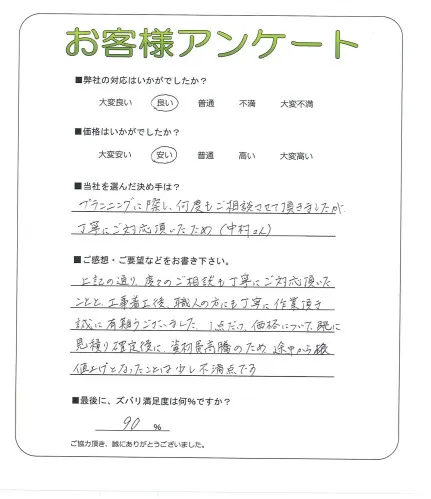 お客様アンケート
■弊社の対応はいかがでしたか？
大変良い 良い 普通 不満 大変不満
■価格はいかがでしたか？
大変安い 安い 普通 高い 大変高い
■当社を選んだ決め手は？
プランニングに際し、何度もご相談させて頂きましたが、
丁寧にご対応頂いたため（中村さん）
■ご感想・ご要望などをお書き下さい。
上記の通り、度々のご相談も丁寧にご対応頂いた
ことと、工事着工後、職人の方にも丁寧に作業頂き
誠に有難うございました。1点だけ、価格について、既に
見積り確定後に、資材費高騰のため 途中から
値上げとなったことは少し不満点です
■最後に、ズバリ満足度は何％ですか？
90 ％
ご協力頂き、誠にありがとうございました。